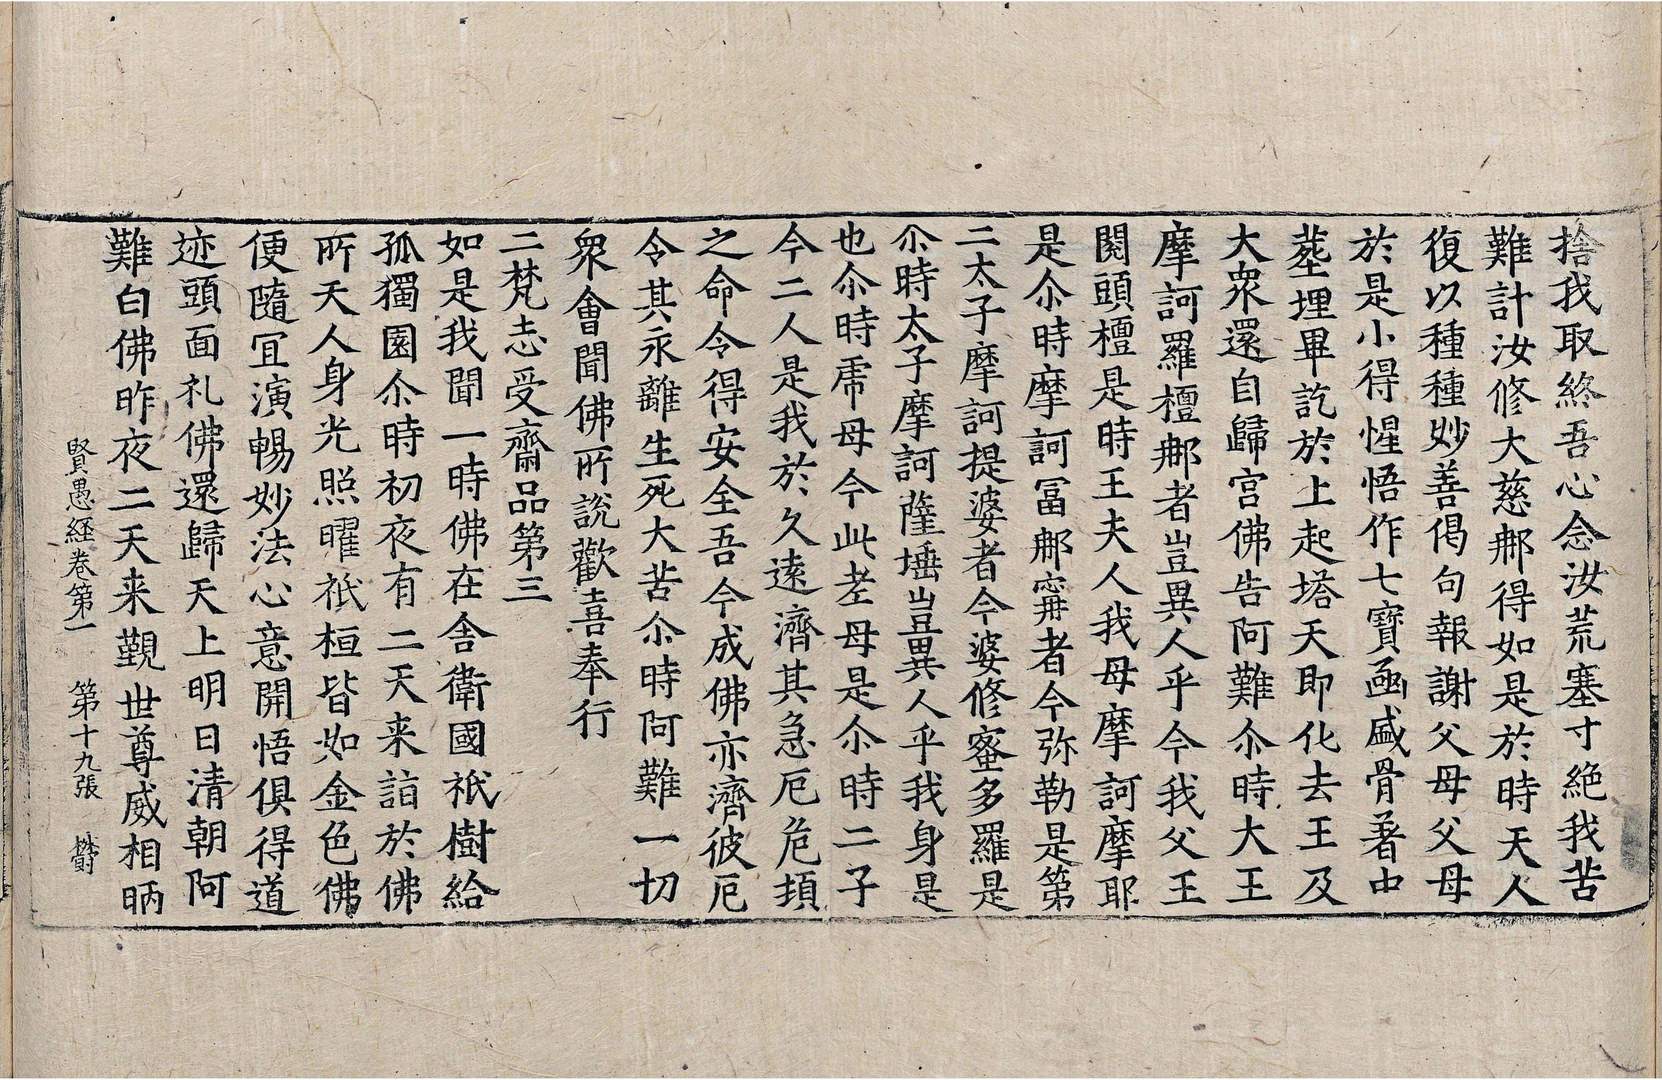 捨我取終吾心念汝荒塞寸絶我苦
難計汝修大慈那得如是於時天人
復以種種妙善偈句報謝父母父母
於是小得惺悟作七寶函盛骨著中
塟埋畢訖於上起塔天即化去王及
大衆還自歸宮佛告阿難尒時大王
摩訶羅檀那者豈異人乎今我父王
閱頭檀是時王夫人我母摩訶摩耶
是尒時摩訶冨那寗者今弥勒是第
二太子摩訶提婆者今婆修蜜多羅是
尒時太子摩訶薩埵豈異人乎我身是
也尒時虎母今此老母是尒時二子
今二人是我於久遠濟其急厄危頓
之命令得安全吾今成佛亦濟彼厄
令其永離生死大苦尒時阿難一切
衆會聞佛所說歡喜奉行
二梵志受齋品第三
如是我聞一時佛在舍衛國祇樹給
孤獨園尒時初夜有二天来詣於佛
所天人身光照曜祇桓皆如金色佛
便隨冝演暢妙法心意開悟俱得道
迹頭面礼佛還歸天上明日清朝阿
難白佛昨夜二天来觀世尊威相昞
賢愚經卷第一 第十九張